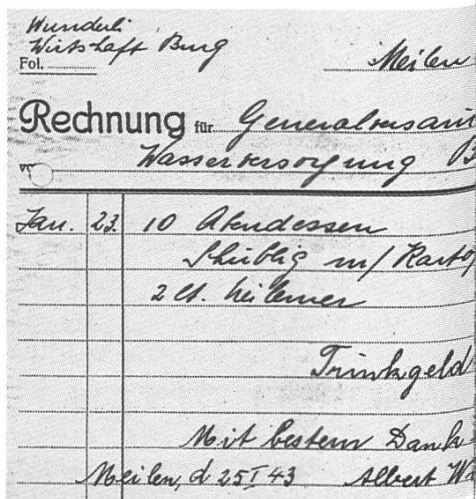 Wunderli
Wirtschaft Burg
Fol. Meilen
Rechnung für Generalversam
Wasserversorgung B
Jan. 23. 10 Abendessen
Schüblig m/ Karto
2 lt. Meilener
Trinkgeld
Mit bestem Dank
Meilen, d. 25 I 43 Albert W